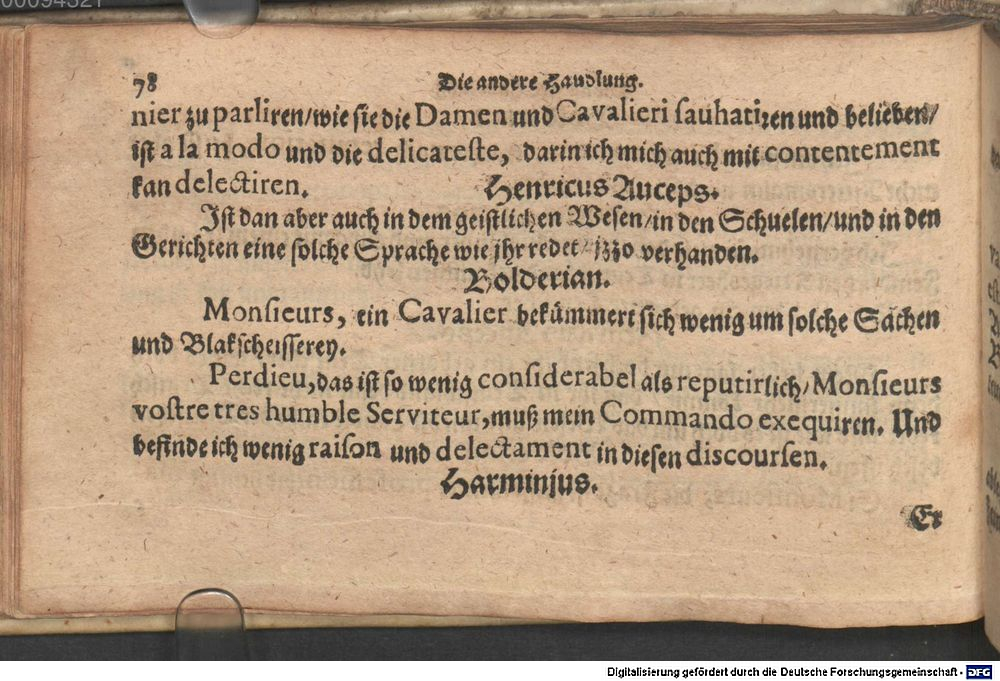 00094321
78
Die andere Haudlung.
nier zu parliren/wie sie die Damen und Cavalieri sauhatiren und belieben/
ist a la modo und die delicateste, darin ich mich auch mit contentement
kan delectiren.
Henricus Auceps.
Ist dan aber auch in dem geistlichen Wesen/in den Schuelen/und in den
Gerichten eine solche Sprache wie jhr redet/jzzo verhanden.
Bolderian.
Monsieurs, ein Cavalier bekümmert sich wenig um solche Sachen
und Blakscheisserey.
Perdieu,das ist so wenig considerabel als reputirlich/Monsieurs
vostre tres humble Serviteur,muß mein Commando exequiren. Und
befinde ich wenig raison und delectament in diesen discoursen.
Harminjus.
Er
Digitalisierung gefördert durch die Deutsche Forschungsgemeinschaft - DFG